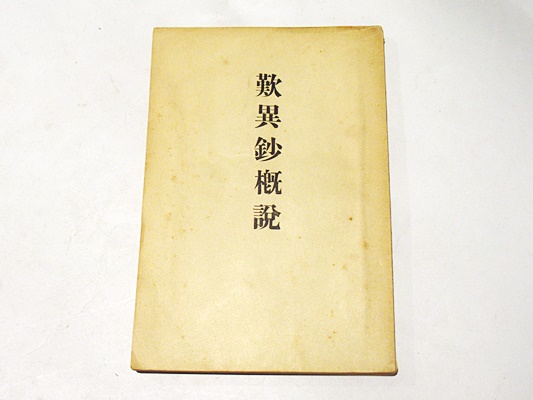 歎異鈔概說